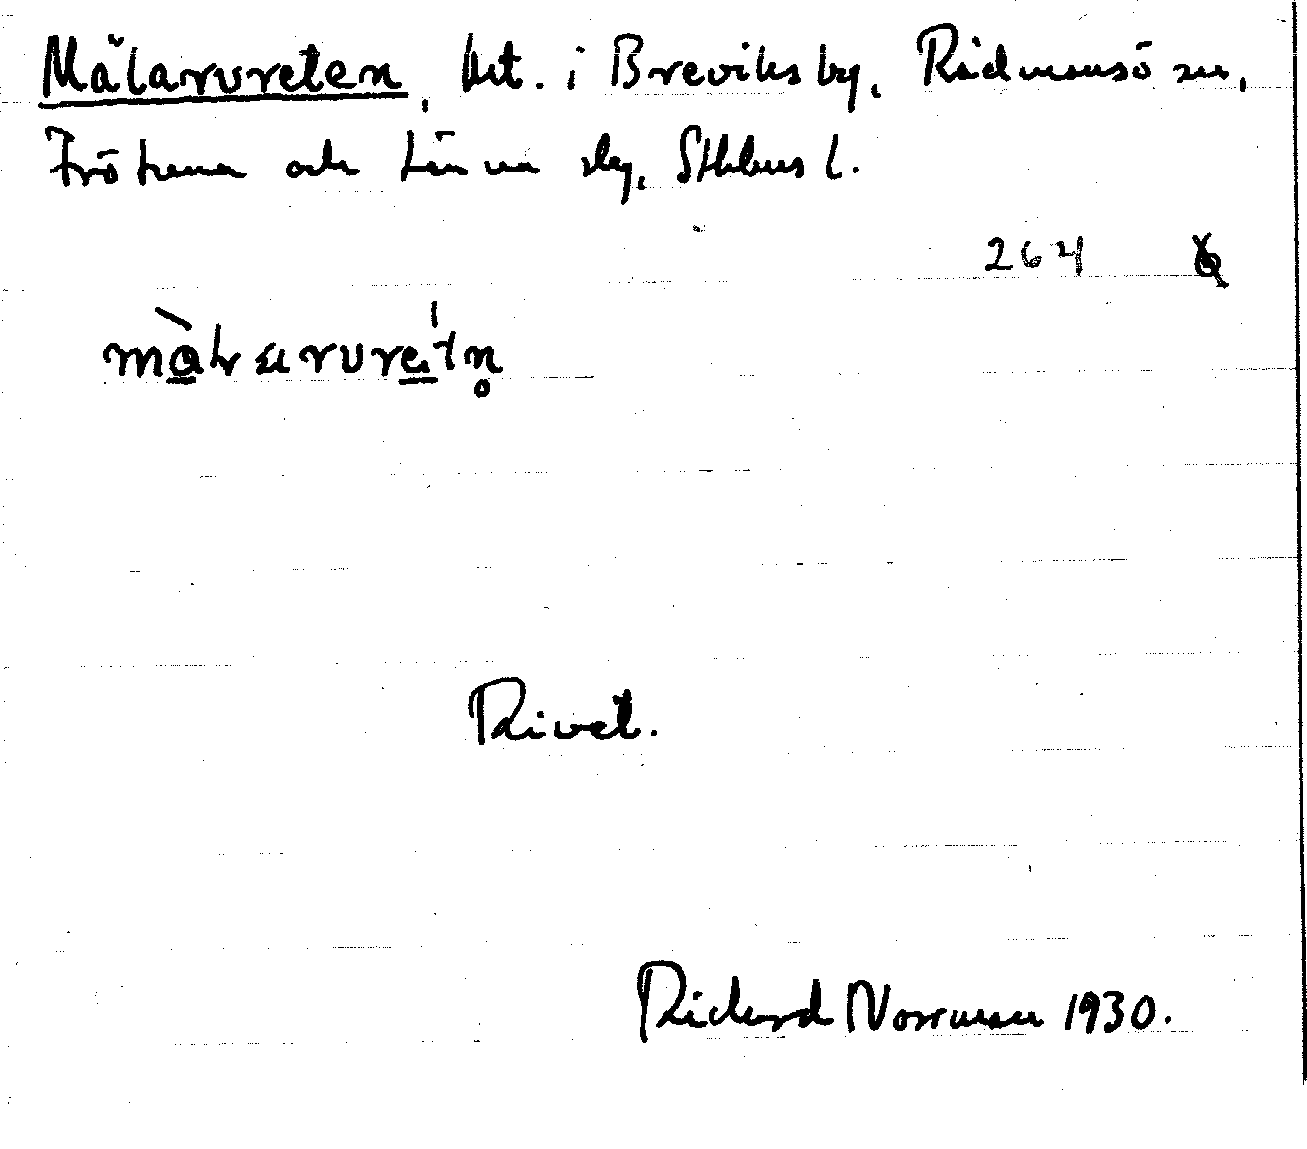 Målarvreten, hst. i Breviks by, Rådmansö sn,
Frötuna och Länna slg, Sthlms l.
264
målarvretn̥
Rivet.
Richard Norrman 1930.